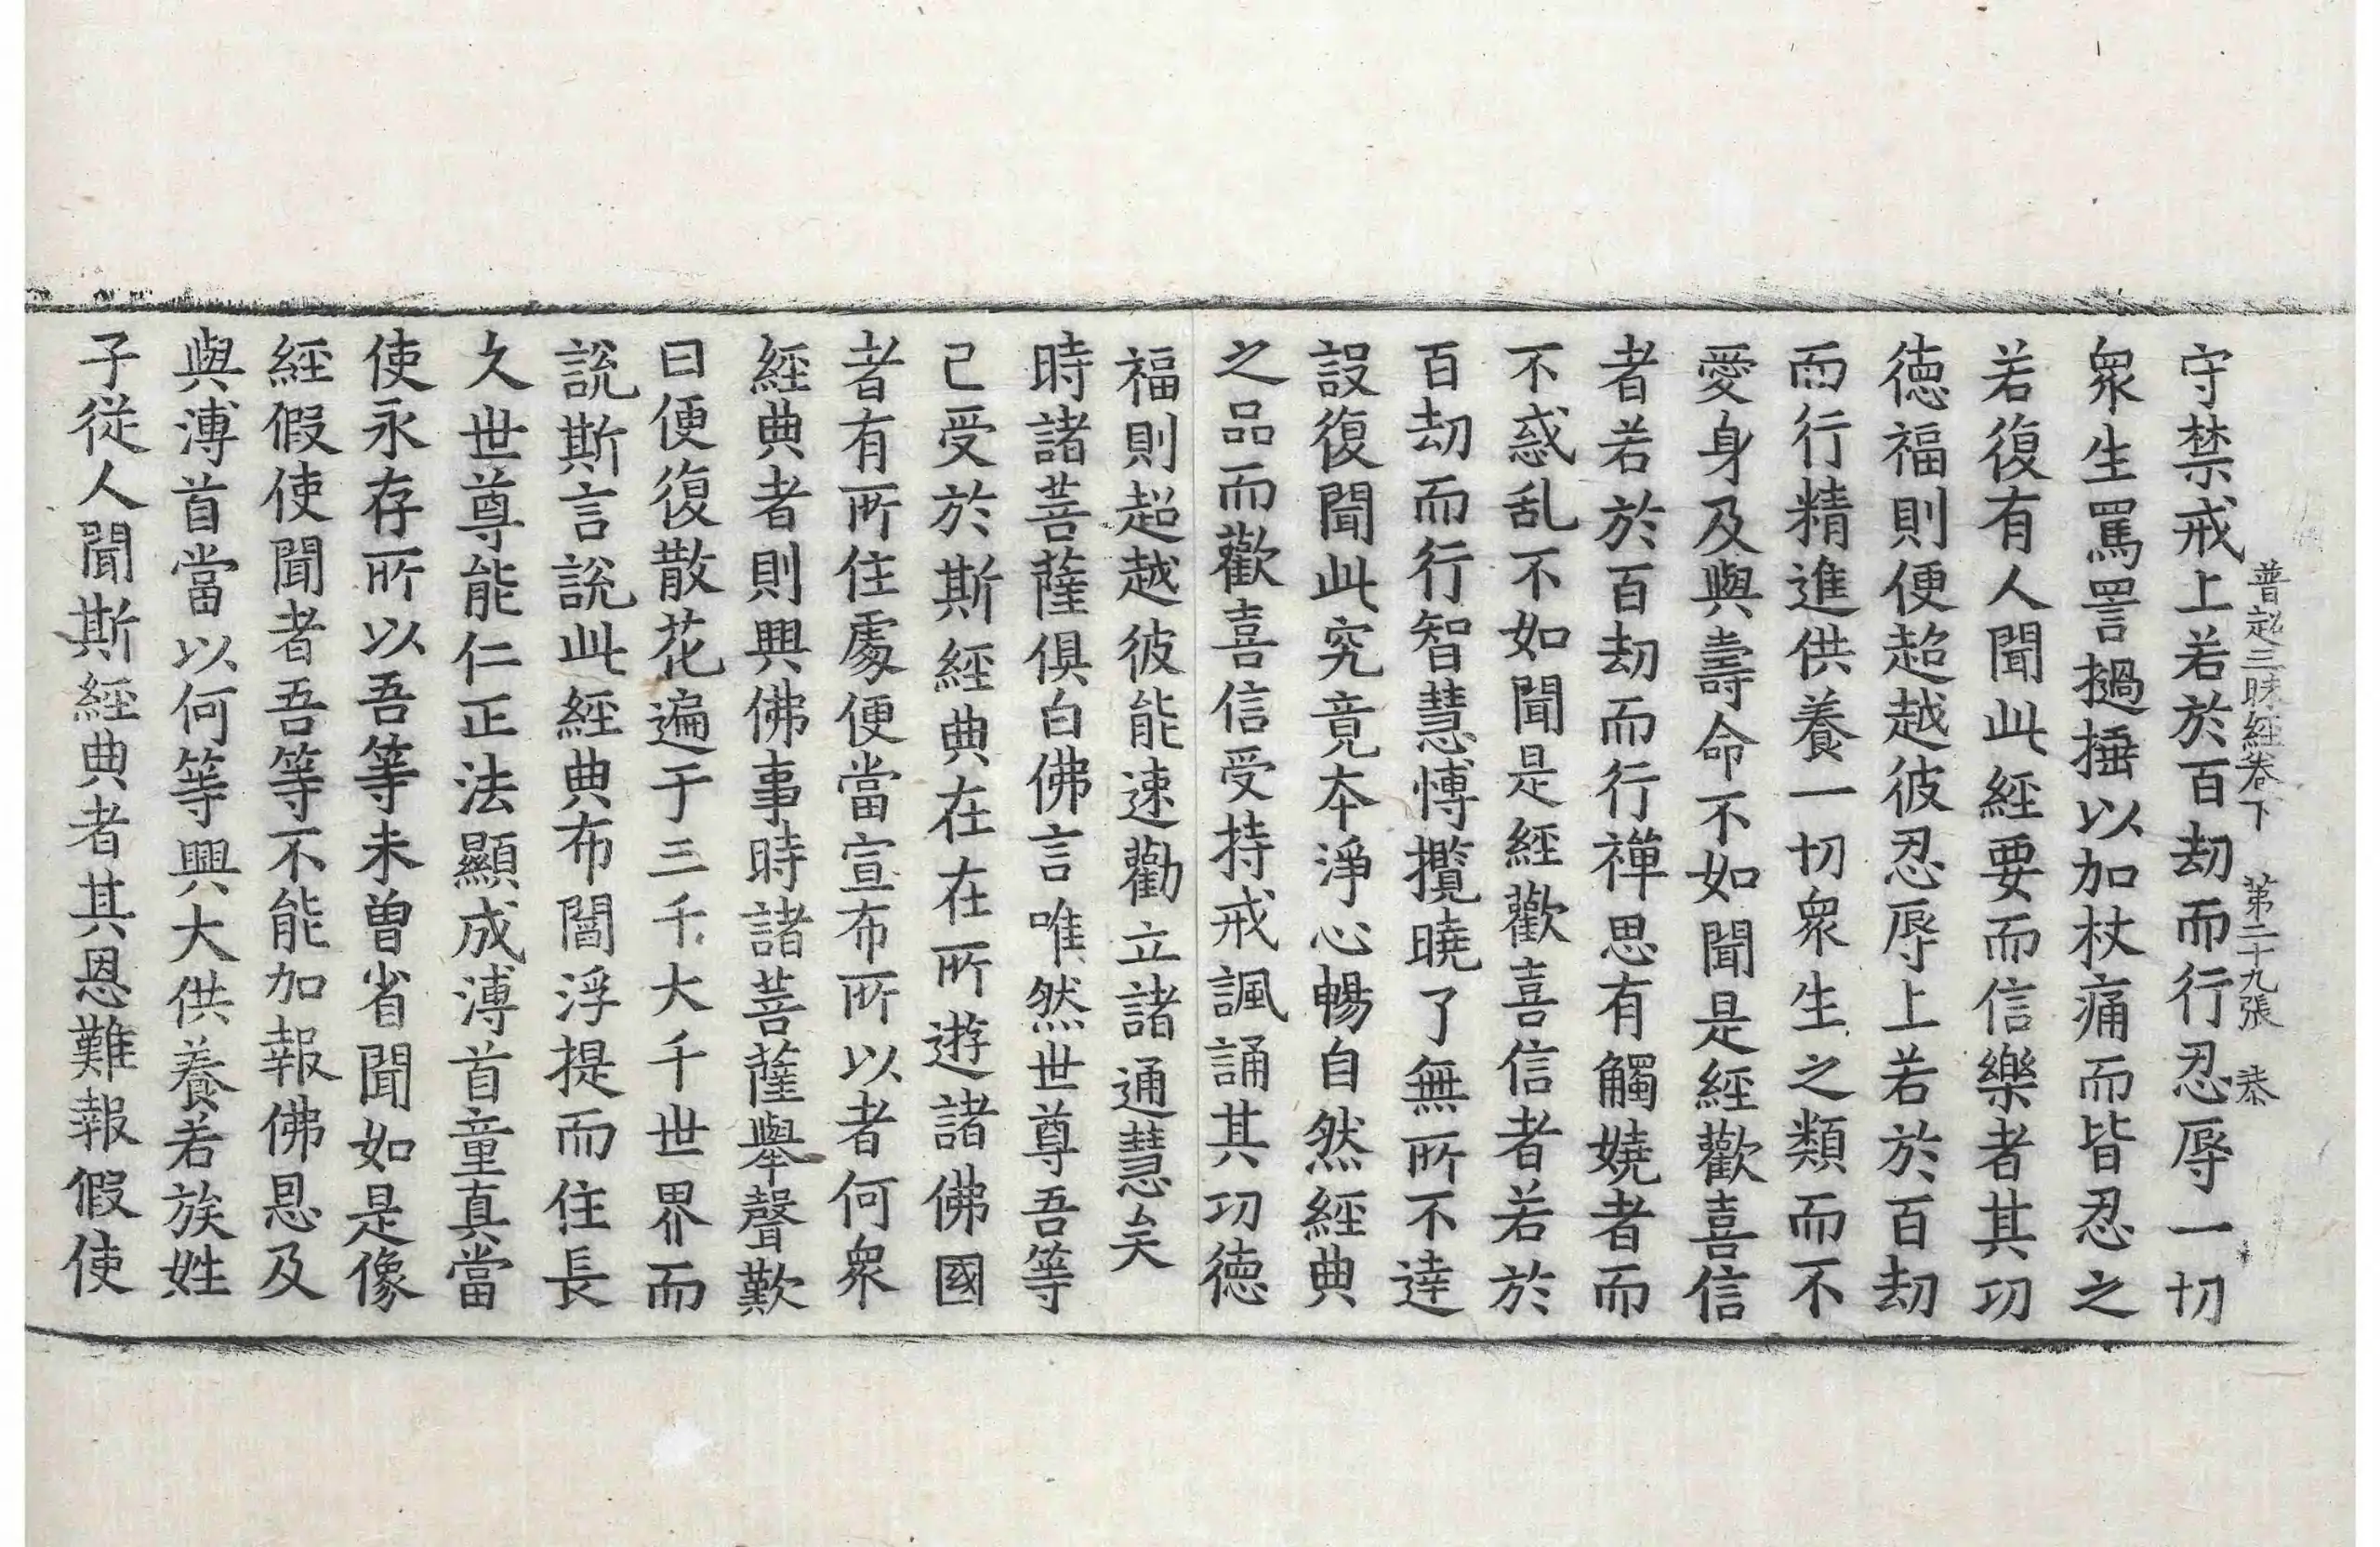 普超三昧經卷下　第二十九張　恭
守禁戒上若於百劫而行忍辱一切
衆生罵詈撾捶以加杖痛而皆忍之
若復有人聞此經要而信樂者其功
徳福則便超越彼忍辱上若於百劫
而行精進供養一切衆生之類而不
愛身及與壽命不如聞是經歡喜信
者若於百劫而行禪思有觸嬈者而
不惑乱不如聞是經歡喜信者若於
百劫而行智慧愽攬曉了無所不達
設復聞此究竟本淨心暢自然經典
之品而歡喜信受持戒諷誦其功徳
福則超越彼能速勸立諸通慧矣
時諸菩薩俱白佛言唯然世尊吾等
已受於斯經典在在所遊諸佛國
者有所住處便當宣布所以者何衆
經典者則興佛事時諸菩薩舉聲歎
曰便復散花遍于三千大千世界而
說斯言說此經典布閻浮提而住長
久世尊能仁正法顯成溥首童真當
使永存所以吾等未曽省聞如是像
經假使聞者吾等不能加報佛恩及
與溥首當以何等興大供養若族姓
子從人聞斯經典者其恩難報假使